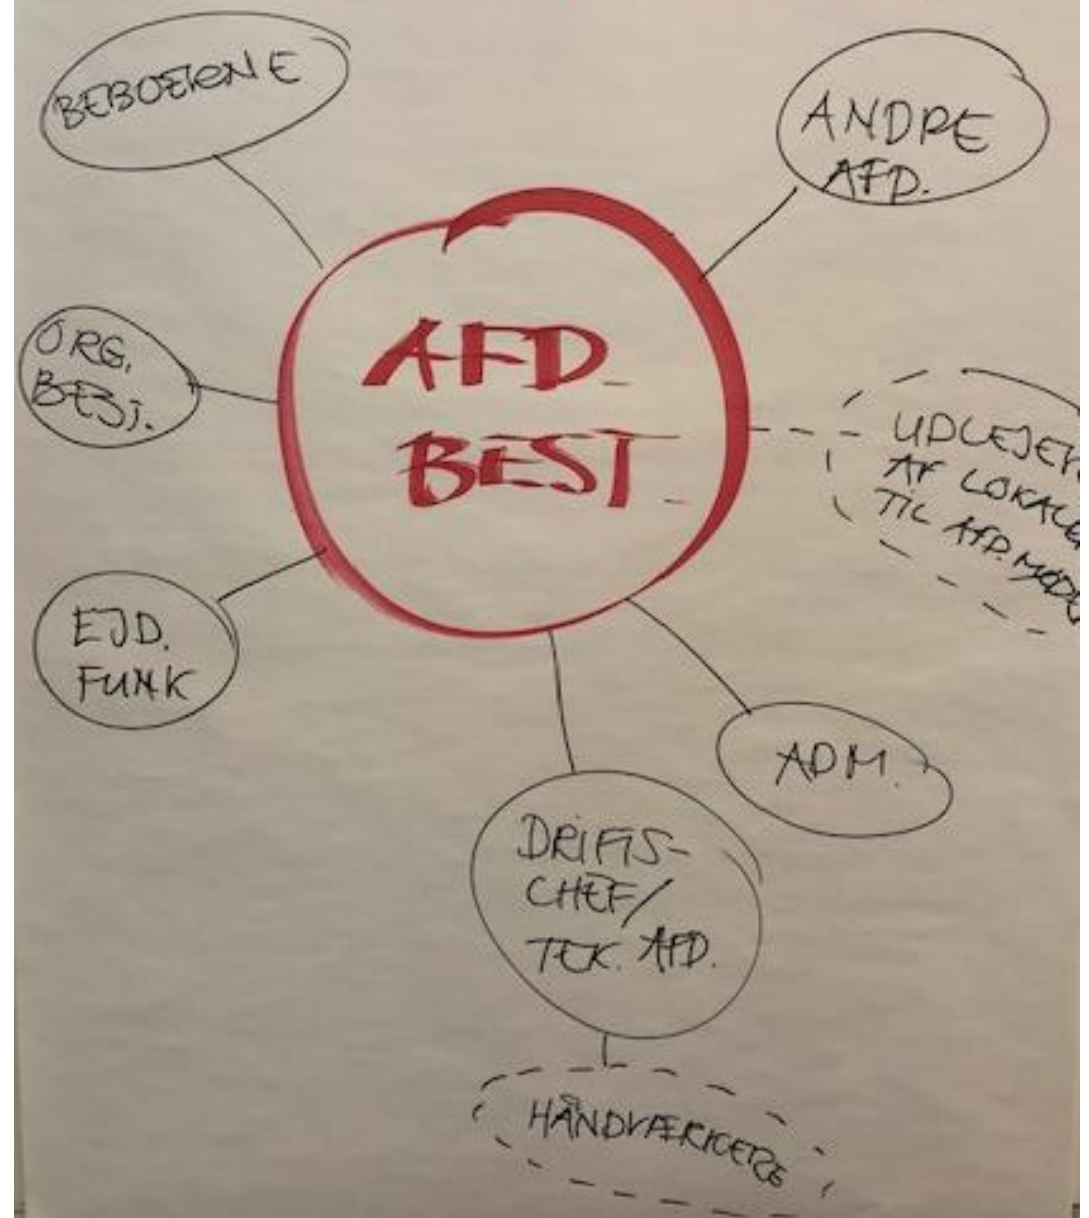 BEBOERNE
ANDRE
AFD.
AFD.
BEST.
ORG.
BEST.
UDLEJER
AF LOKALER
TIL AFD.MØDE
EJD.
FUNK
ADM.
DRIFTS-
CHEF/
TEK. AFD.
HÅNDVÆRKERE